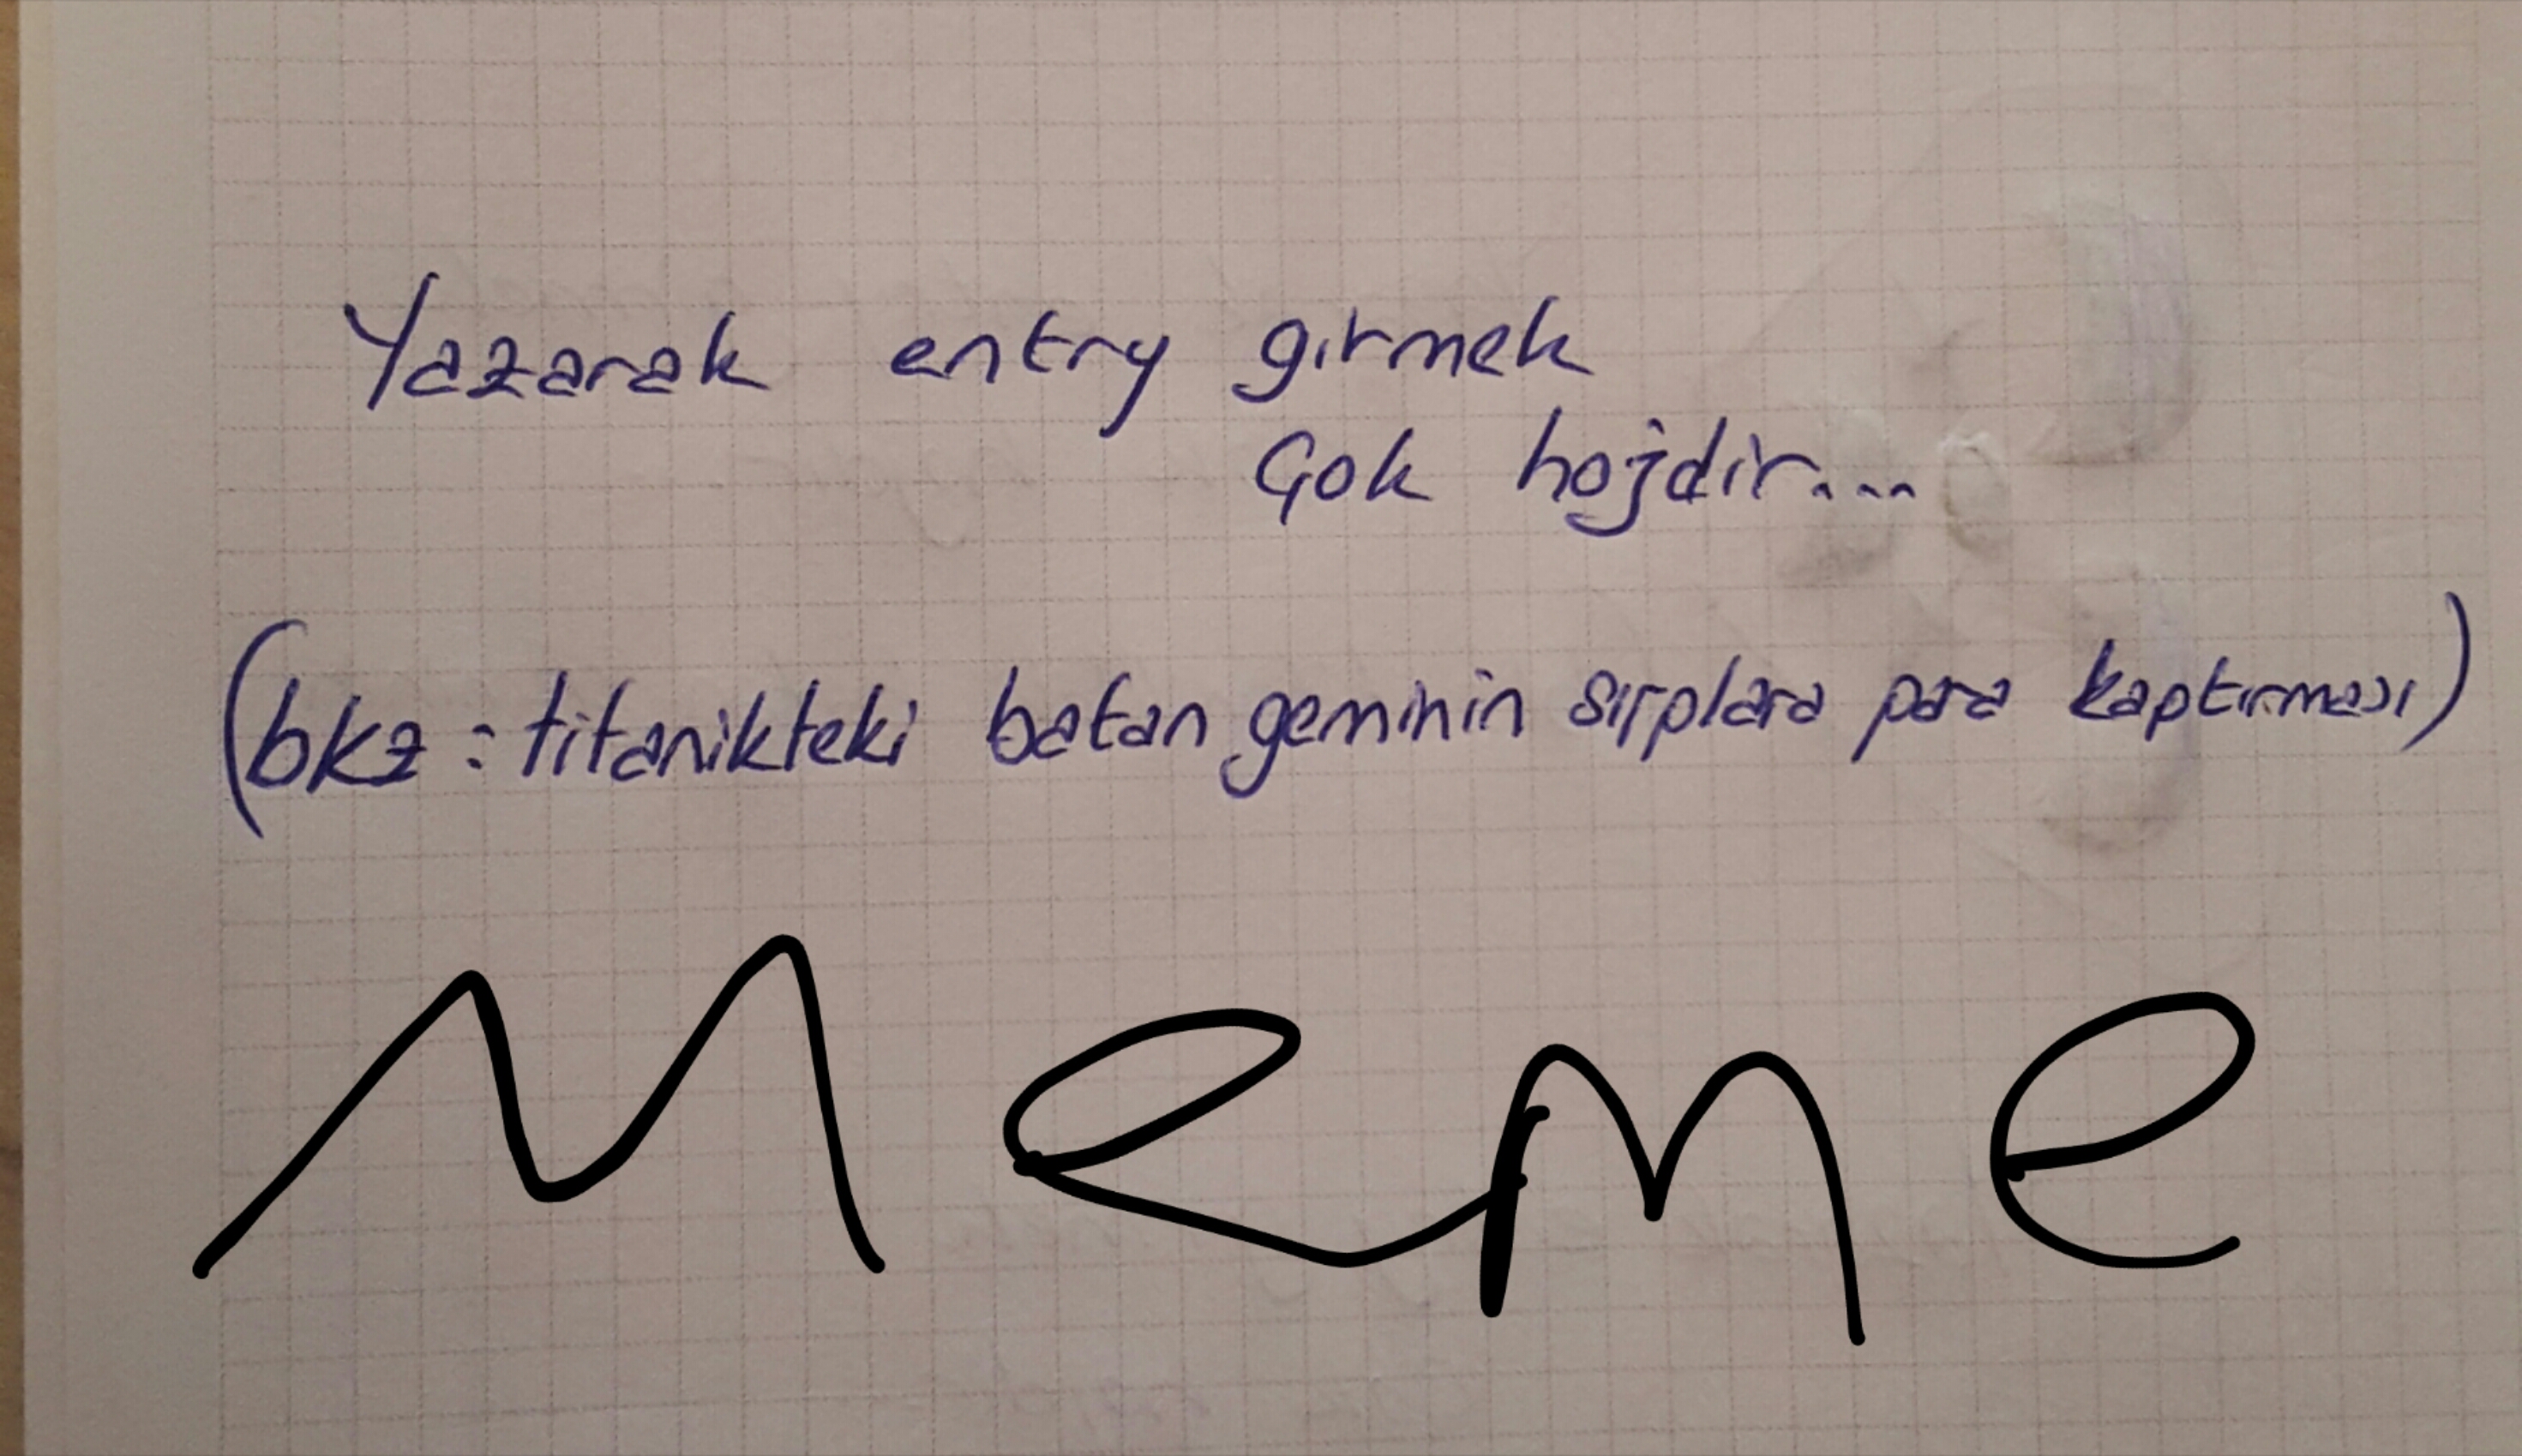 Yazarak entry girmek
çok hojdir...
(bkz : titanikteki batan geminin sırplara para kaptırması)
Meme